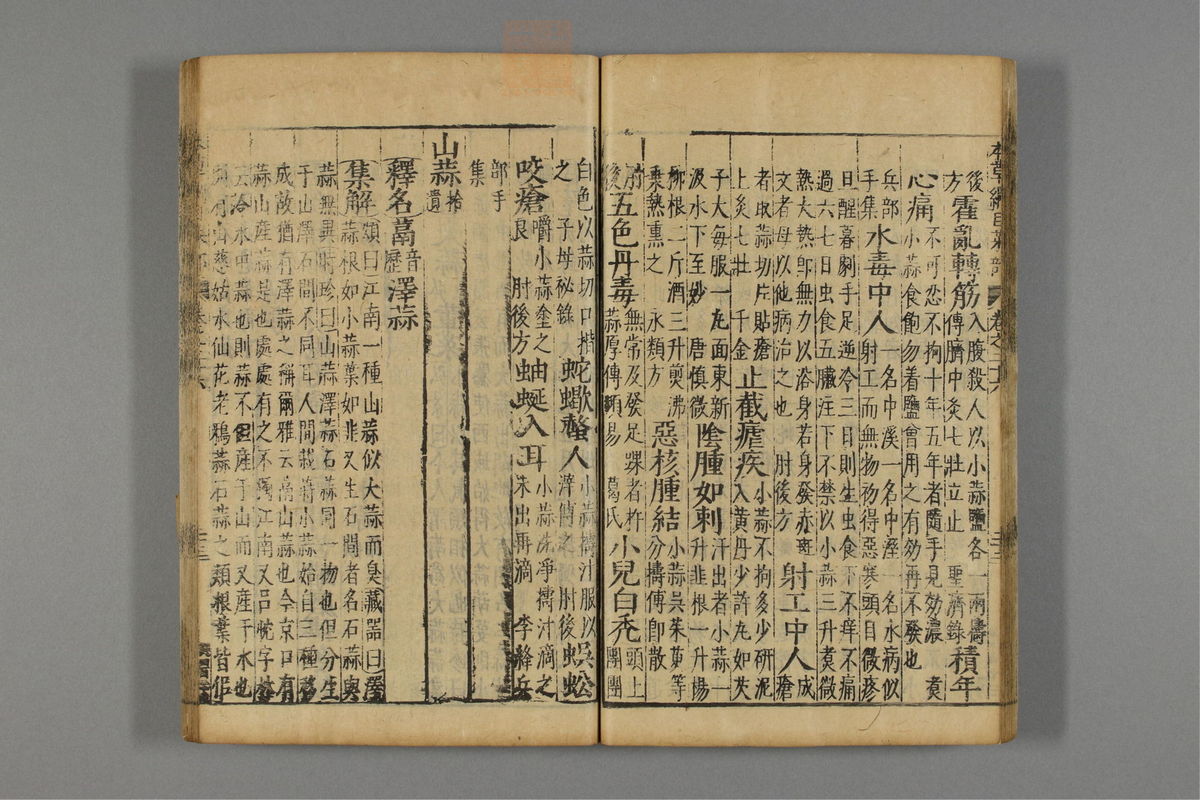 本草綱目菜部 卷之二十六
後方 霍亂轉筋 入腹殺人以小蒜鹽各一兩擣傅臍中灸七壯立止 聖濟錄 積年
心痛 不可忍不拘十年五年者隨手見効濃煮小蒜食飽勿着鹽曾用之有効再不發也
兵部手集 水毒中人 一名中溪一名中溼一名水病似射工而無物初得惡寒頭目微疼
旦醒暮劇手足逆冷三日則生虫食下不痒不痛過六七日虫食五臟注下不禁以小蒜三升煮微
熱大熱即無力以浴身若身發赤斑文者母以他病治之也 肘後方 射工中人 成瘡
者取蒜切片貼瘡上灸七壯 千金 止截瘧疾 小蒜不拘多少研泥入黃丹少許丸如芡
子大每服一丸面東新汲水下至妙 唐慎微 陰腫如刺 汗出者小蒜一升韭根一升楊
柳根二斤酒三升煎沸乘熱熏之 永類方 惡核腫結 小蒜吳茱萸等分擣傅即散
肘後 五色丹毒 無常及發足踝者杵蒜厚傅頻易 葛氏 小兒白禿 頭上團團
白色以蒜切口揩之 子母祕錄 蛇蠍螫人 小蒜擣汁服以滓傅之 肘後 蜈蚣
咬瘡 嚼小蒜塗之良 肘後方 蚰蜒入耳 小蒜洗凈擣汁滴之未出再滴 李絳兵
部手集
山蒜 拾遺
釋名 蒚 音歷 澤蒜
集解 頌曰江南一種山蒜似大蒜而臭藏器曰澤蒜根如小蒜葉如韭又生石間者名石蒜與
蒜無異時珍曰山蒜澤蒜石蒜同一物也但分生于山澤石間不同耳人間栽蒔小蒜始自三種移
成故猶有澤蒜之稱爾雅云蒚山蒜也今京口有蒜山產蒜是也處處有之不獨江南又呂忱字林
云水中蒜也則蒜不但產于山而又產于水也別有山慈姑水仙花老鴉蒜石蒜之類根葉皆似